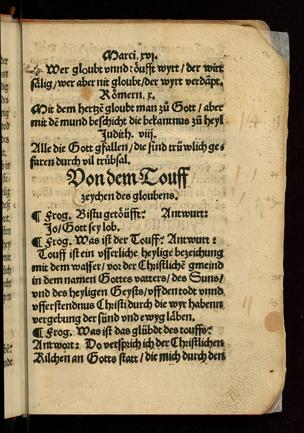 Marci. xvj.
Wer gloubt vnnd: töufft wyrt / der wirt
sälig / wer aber nit gloubt / der wyrt verdāpt.
Römern. x.
Mit dem hertzē gloubt man zů Gott / aber
mit dē mund beschicht die bekantnus zů heyl
Judith. viij.
Alle die Gott gfallen / die sind trüwlich ge⸗
faren durch vil trübsal.
Von dem Touff /
zeychen des gloubens.
¶ Frog. Bistu getöüfft: Antwurt:
Jo / Gott sey lob.
¶ Frog. Was ist der Touff: Antwurt:
Touff ist ein vsserliche heylige bezeichung
mit dem wasser / vor der Christlichē gmeind
in dem namen Gottes vatters / des Suns /
vnd des heyligen Geysts / vff den todt vnnd
vfferstendnus Christi durch die wyr habenn
vergebung der sünd vnd ewyg läben.
¶ Frog. Was ist das glübdt des touffs:
Antwort: Do versprich ich der Christlichen
Kilchen an Gotts statt / die mich durch den